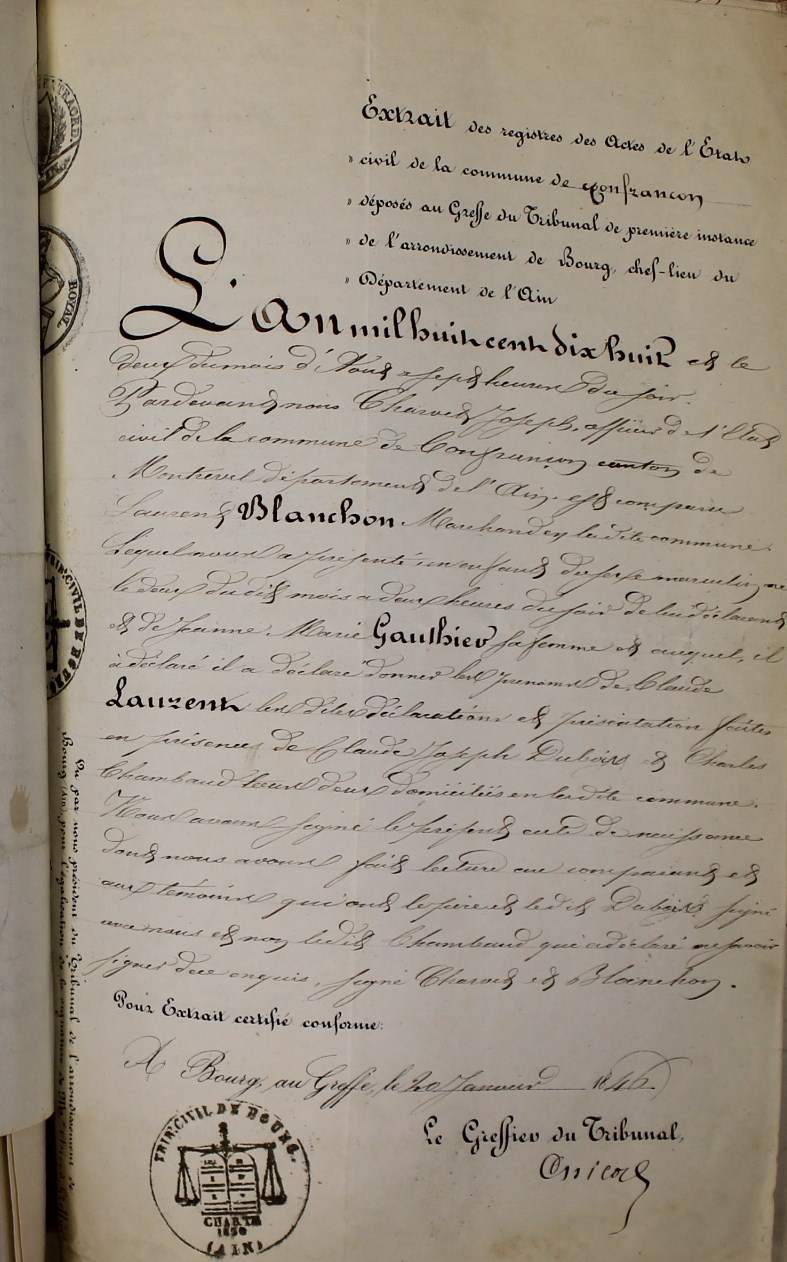 Extrait des registres des Actes de l'Etat
" civil de la commune de Confrançon
" déposés au Greffe du Tribunal de première instance
" de l'arrondissement de Bourg, chef-lieu du
" Département de l'Ain
L'An mil huit cent dix huit et le
deux du mois d'Aout a sept heures du soir.
Pardevant nous Charvet Joseph, officier de l'Etat
civil de la commune de Confrançon canton de
Montrevel département de l'Ain. est comparu
Laurent Blanchon Marchand en la dite commune.
Lequel nous a présenté un enfant du sexe masculin né
le deux du dit mois a deux heures du soir de lui déclarant
et de Jeanne Marie Gauthier sa femme et auquel, il
a déclaré il a déclaré donner les prenoms de Claude
Laurent les dites déclarations et présentation faites
en présence de Claude Joseph Dubois et Charles
Chambaud tous deux domiciliés en la dite commune.
Nous avons signé le présent acte de naissance
dont nous avons fait lecture au comparant et
aux témoins qui ont le père et le dit Dubois signé
avec nous et non le dit Chambaud qui a déclaré ne savoir
signer de ce enquis, signé Charvet et Blanchon.
Pour Extrait certifié conforme:
A Bourg, au Greffe, le 20 Janvier 1846.
Le Greffier du Tribunal,
TRIB. CIVIL DE BOURG.
CHARTE
1830
(AIN)
ROYAL
TRIB. CIVIL DE BOURG
Vu par nous président du Tribunal de l'arrondissement de
Bourg (Ain), pour légalisation de la signature de